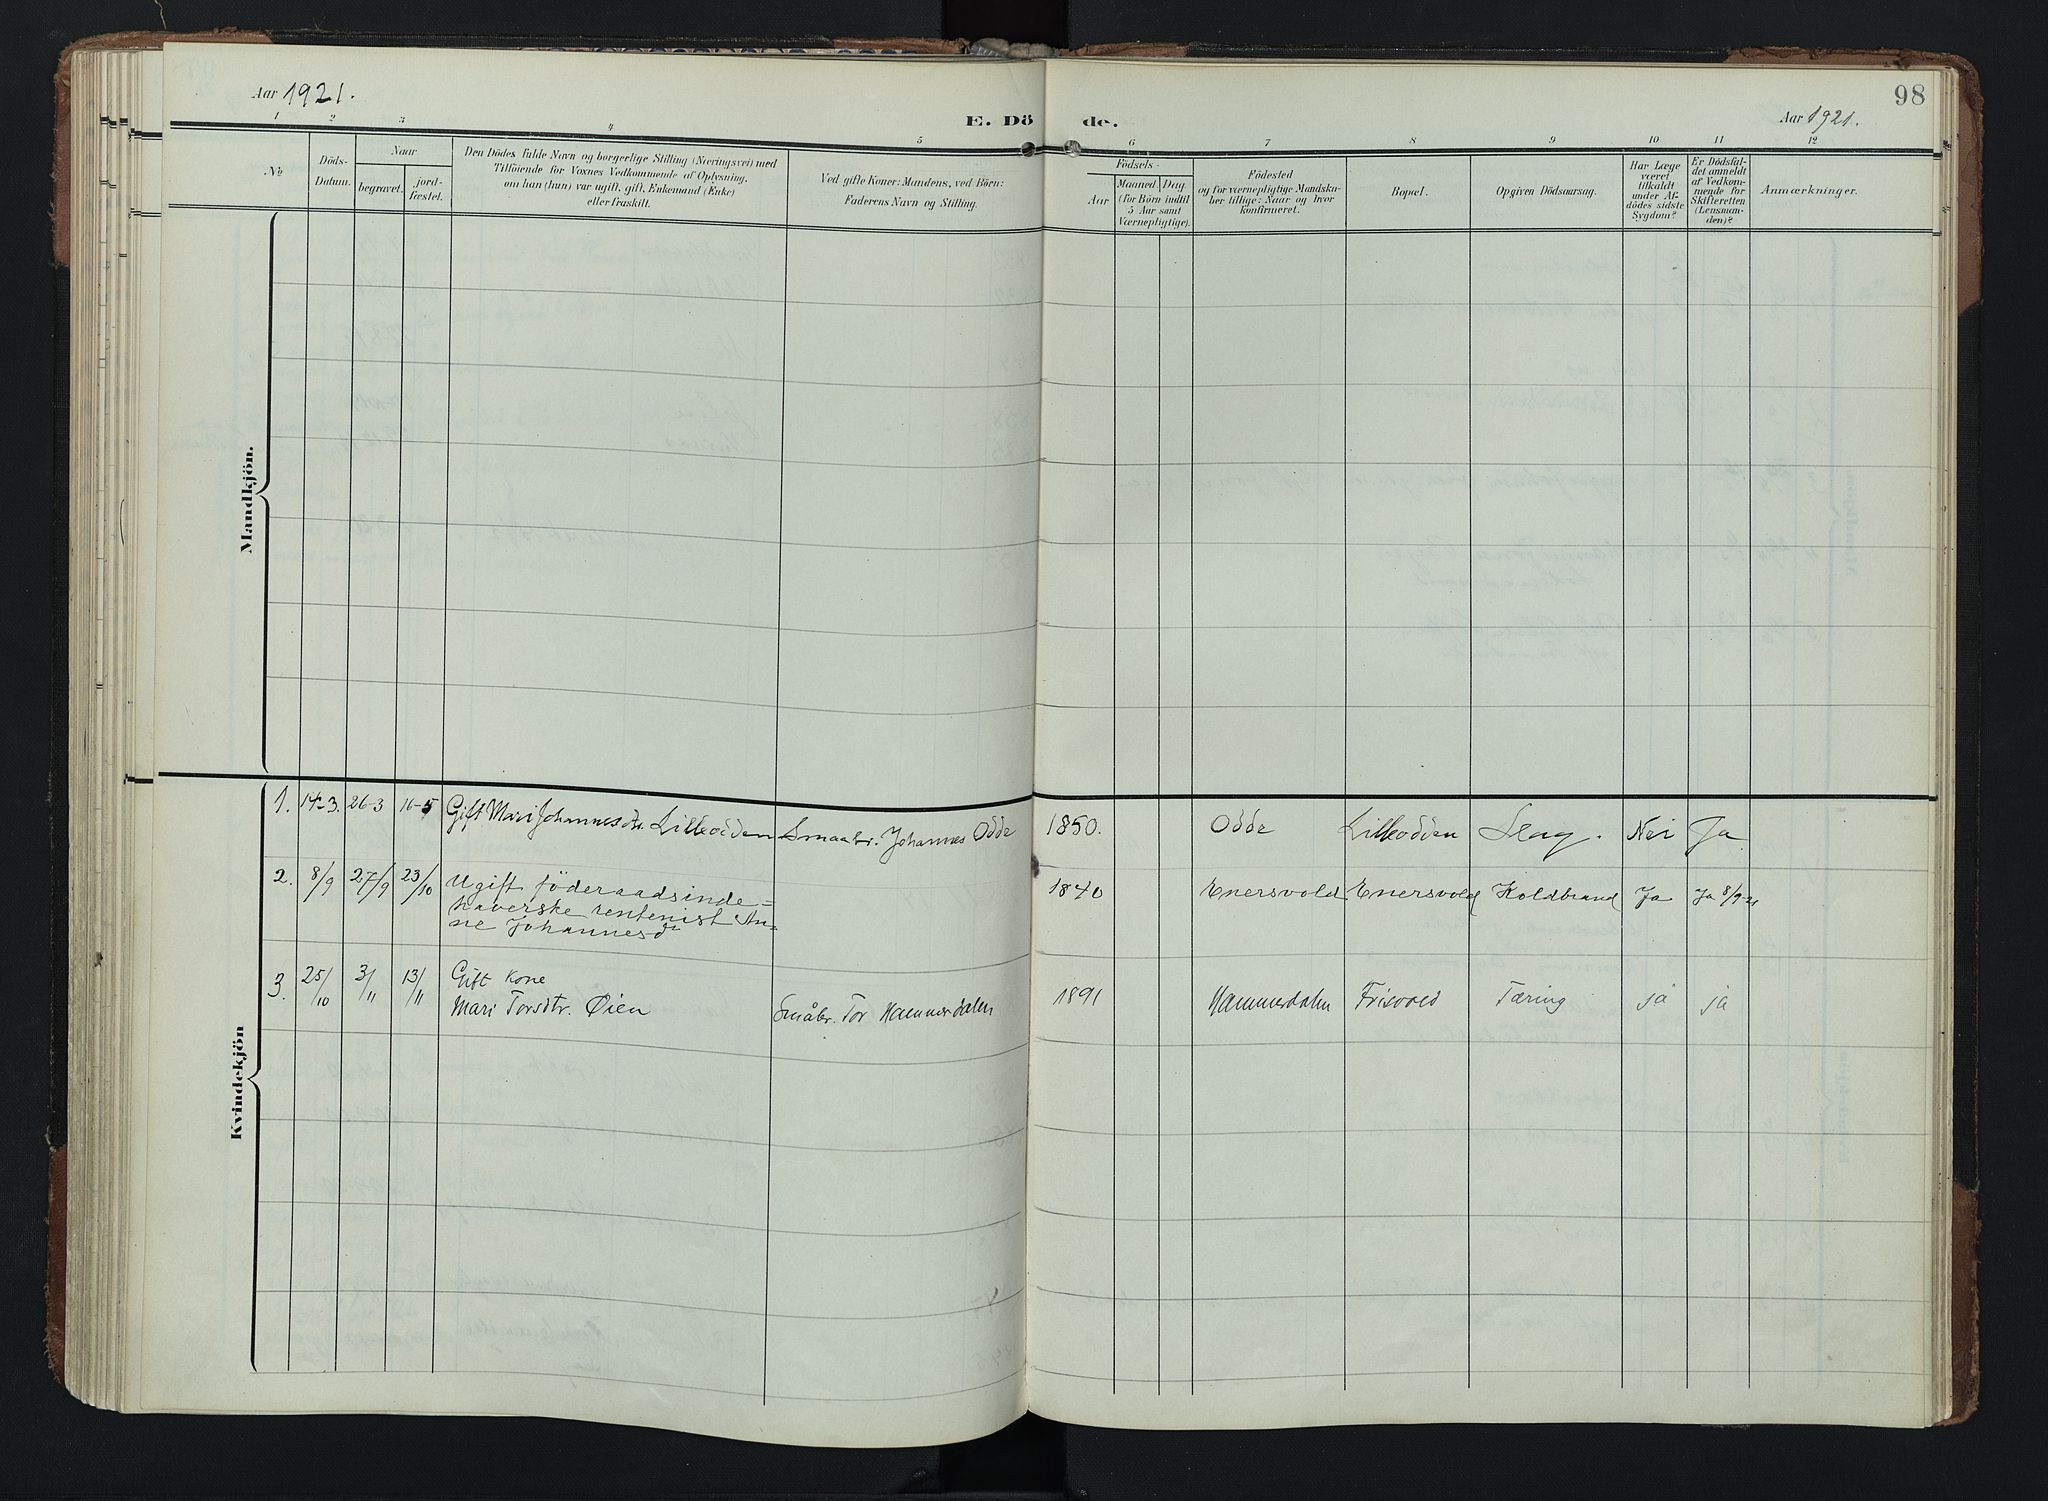 Aar 1921.
E. Dö de.
Aar 1921.
98
1 2 3 4 5 6 7 8 9 10 11 12
No.
Döds-
Datum.
Naar
begravet.
jord-
fæstet.
Den Dödes fulde Navn og borgerlige Stilling (Næringsvei) med
Tilföiende for Voxnes Vedkommende af Oplysning,
om han (hun) var ugift, gift, Enkemand (Enke)
eller fraskilt.
Ved gifte Koner: Mandens, ved Börn:
Faderens Navn og Stilling.
Födsels-
Aar
Maaned. Dag.
(for Börn indtil
5 Aar samt
Værnepligtige).
Födested
og for værnepligtige Mandska-
ber tillige: Naar og hvor
konfirmeret.
Bopæl.
Opgiven Dödsaarsag.
Har Læge
været
tilkaldt
under Af-
dödes sidste
Sygdom?
Er Dödsfal-
det anmeldt
af Vedkom-
mende for
Skifteretten
(Lensman-
den)?
Anmærkninger.
Mandkjön.
Kvindekjön
1. 14-3. 26-3 16-5 Gift Mari Johannesdtr. Lilleodden Smaabr. Johannes Odde 1850. Odde Lilleodden Slag. Nei Ja
2. 8/9 27/9 23/10 Ugift föderaadsinde= 1840 Enersvold Enersvold Koldbrand Ja Ja 8/9-21
haverske rentenist An-
ne Johannesd
3. 25/10 3/11 13/11 Gift kone
Mari Torsdtr. Øien Småbr. Tor Hammerdalen 1891 Hammerdalen Frisvold Tæring ja ja